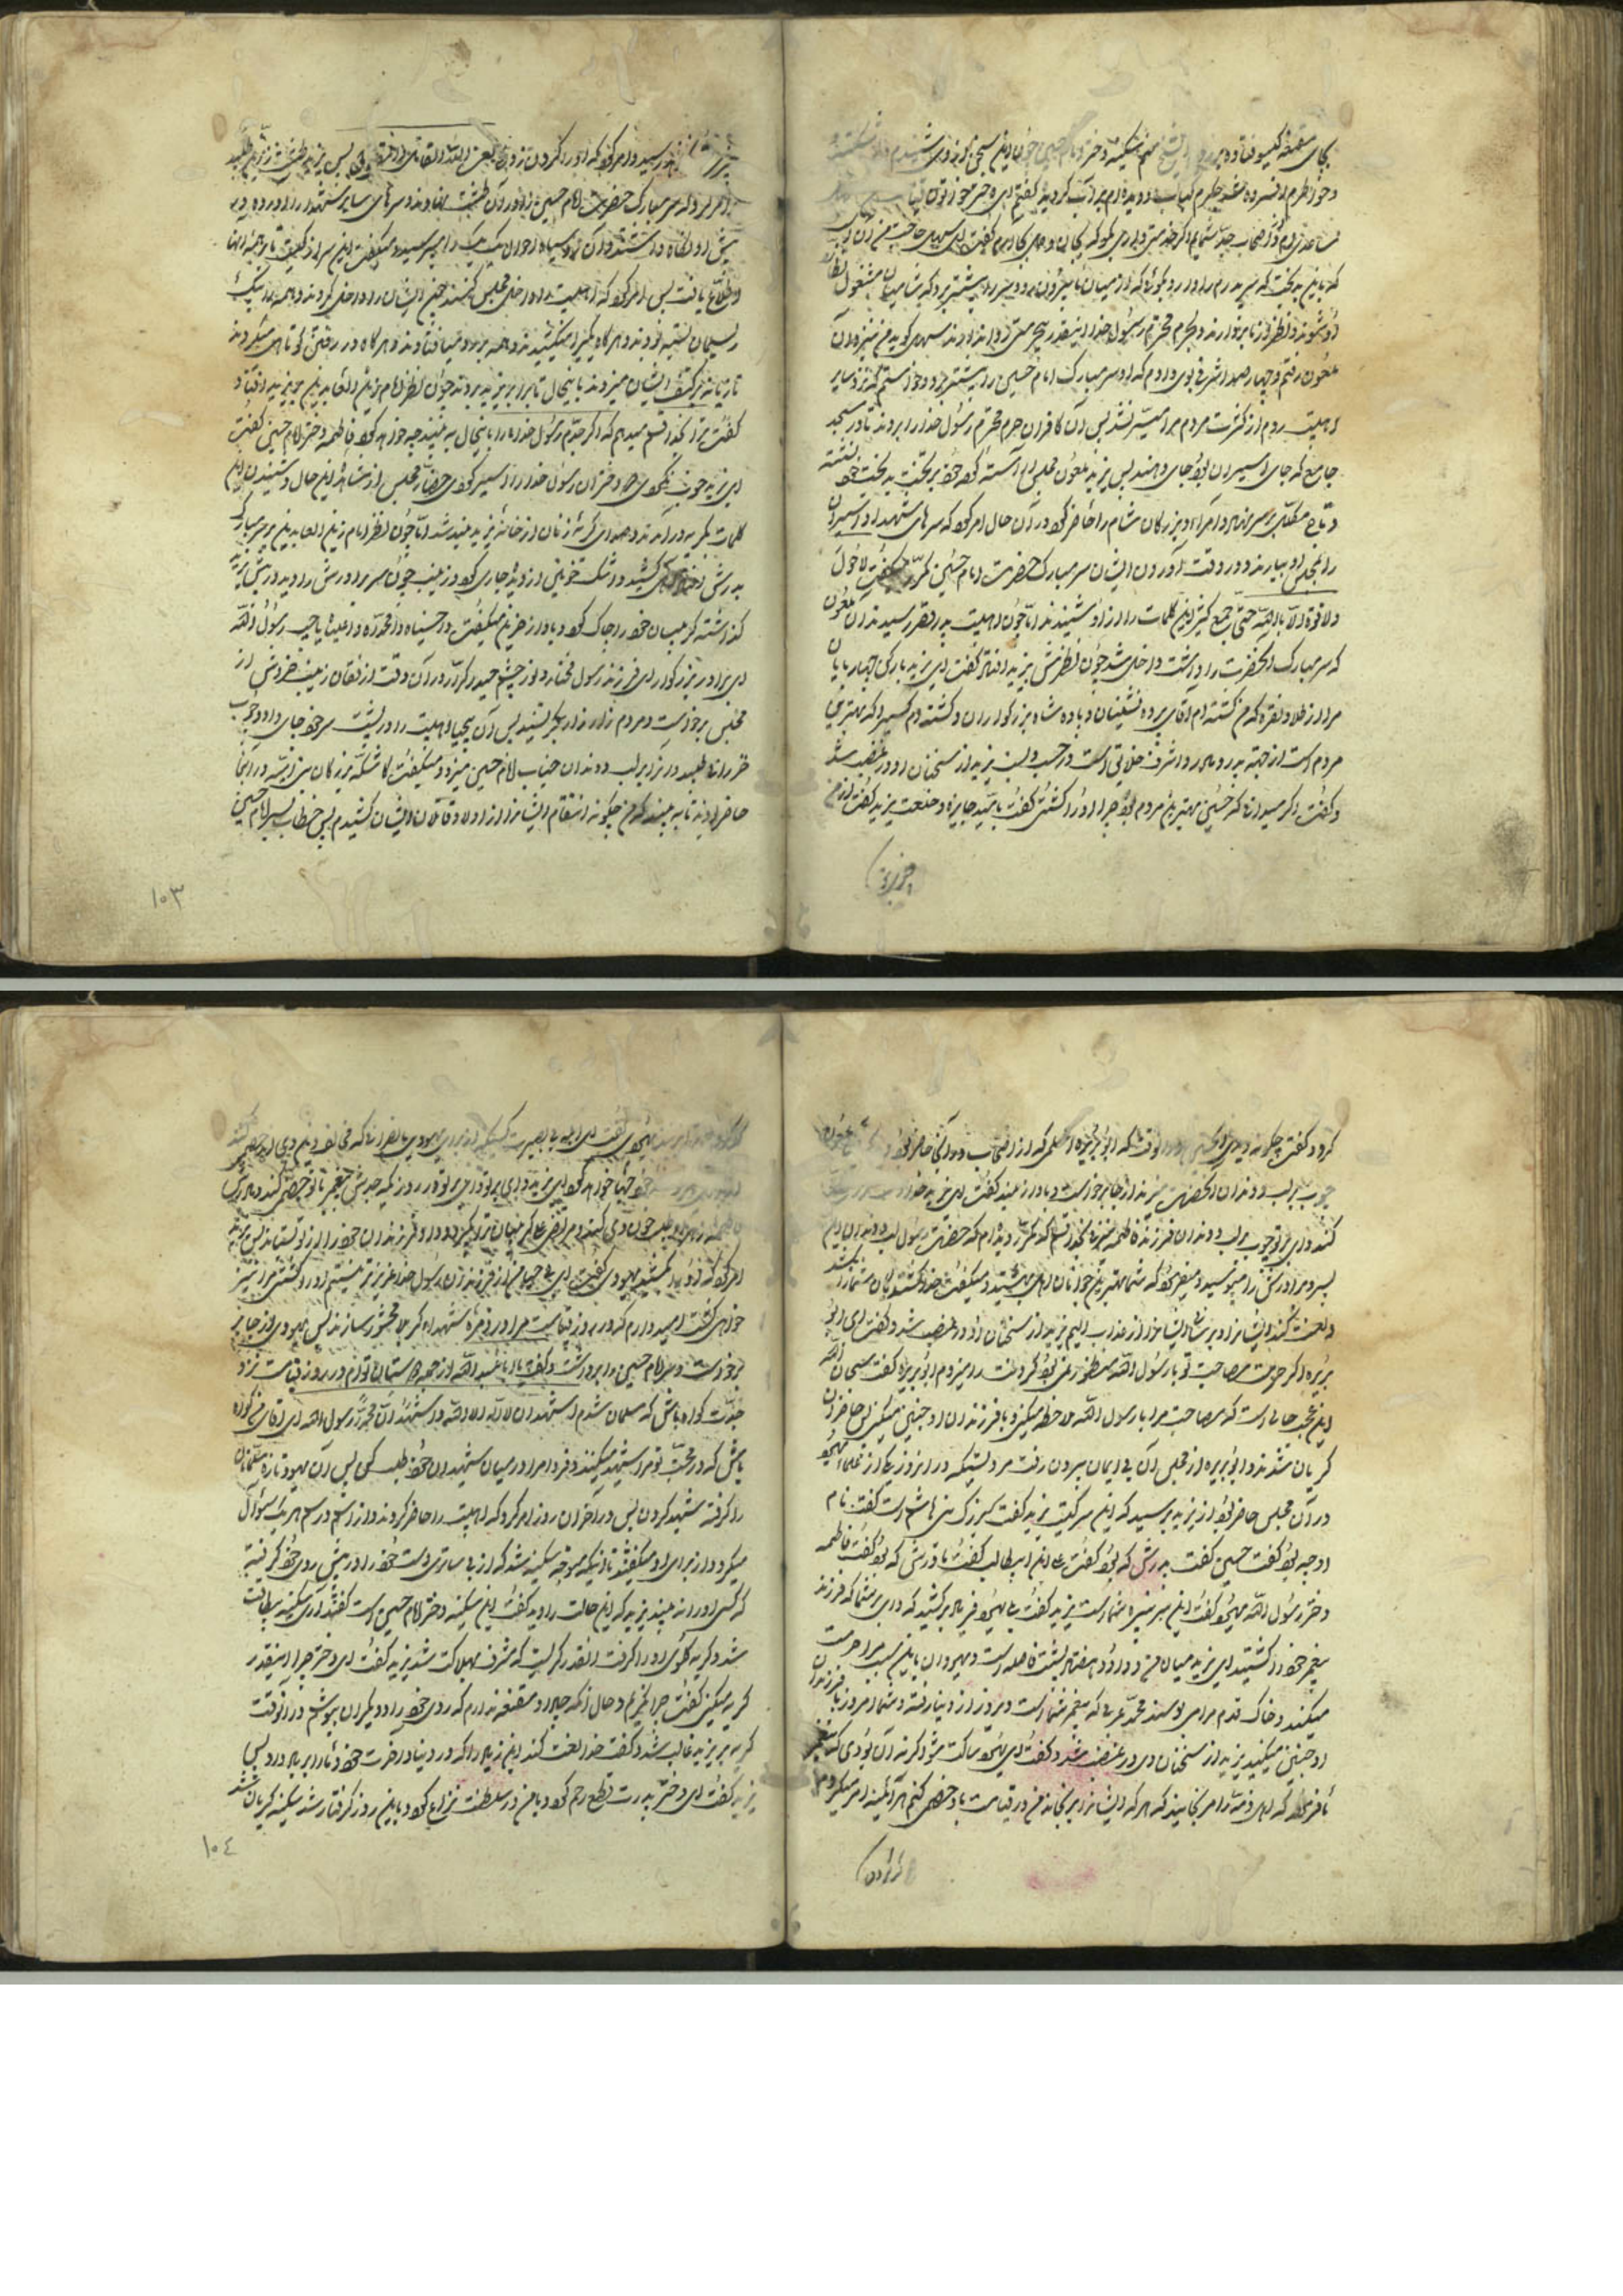 بجای مقنعه کیسو منم سکینه دختر امام حسین چون این سخن از او شنیدم
و خواطرم افسرده شد جگرم کباب و دیده‌ام پر آب گردید گفتم ای دختر
از اصحاب جد شمایم اگر خدمتی داری بگو که بجان و دل بجا آورم گفت ای سهل حاجت من آن است
که باین بدبخت که سر پدرم را دارد بگوئی که از میان ما بیرون رود و سر را پیشتر برد که شامیان مشغول نظاره
او شوند و نظر از ما بردارند و بحرم محترم رسول خدا اینقدر بیحرمتی روا ندارند سهل گوید من نزد آن
ملعون رفتم و چهار صد اشرفی بوی دادم که او سر مبارک امام حسین را پیشتر برد و خواستم که نزد سایر
اهلبیت روم از کثرت مردم مرا میسر نشد پس آن کافران حرم محترم رسول خدا را بردند تا در مسجد
جامع که جای اسیران بود جای دادند پس یزید ملعون مجلس آراسته کرد خود بر تخت بدبختی نشسته
و تاج بر سر نهاد و امراء و بزرکان شام را حاضر کرد در آن حال امر کرد که سرهای شهدا و اسیران
را بمجلس او بیارند و در وقت آوردن ایشان سر مبارک حضرت امام حسین مکرر میگفت لا حول
ولا قوة الا بالله حتی جمع کثیر این کلمات را از او شنیدند اما چون اهلبیت بدر قصر رسیدند آن ملعون
که سر مبارک آنحضرت را داشت داخل شد چون نظرش بیزید افتاد گفت ای یزید بار کن چهارپایان
مرا از طلا و نقره که من کشته‌ام آقای پرده نشینان و پادشاه بزرکوار را و کشته‌ام کسیرا که بهترین
مردم است از جهة پدر و مادر و اشرف خلایق است در حسب و نسب یزید از سخنان او در غضب شد
و گفت اگر میدانی که حسین بهترین مردم بود چرا او را کشتی گفت بامید جایزه و خلعت یزید گفت از من
رسید و امر کرد که او را گردن زدند پس یزید طشت زرین طلبید
و امر کرد که سر مبارک حضرت امام حسین را در آن طشت نهادند و سرهای سایر شهدا را در آورده در
پیش او نگاه داشتند و آن رو سیاه احوال یک یک را میپرسید و میگفت این سر از کیست تا بر همه آنها
اطلاع یافت پس امر کرد که اهلبیت را داخل مجلس کنند چون ایشان را داخل کردند و همه را بیک
ریسمان بسته بودند و هر گاه یکیرا میکشیدند و همه بر رو میافتادند و هر گاه در رفتن کوتاهی میکردند
تازیانه بر کتف ایشان میزدند باینحال تا برابر یزید بردند چون نظر امام زین العابدین بر یزید افتاد
گفت ترا بخدا قسم میدهم که اگر جدم رسول خدا ما را باینحال به بیند چه خواهد کرد فاطمه دختر امام حسین گفت
ای یزید خوب نکردی دختران رسول خدا را اسیر کردی حضار مجلس از مشاهده این حال و شنیدن این
کلمات بگریه درآمدند و صدای گریه زنان از خانه یزید بلند شد اما چون نظر امام زین العابدین بر سر مبارک
پدرش افتاد آهی کشید و اشک خونین از دیده جاری کرد و زینب چون سر برادرش را دید در پیش یزید
گذاشته گریبان خود را چاک کرد و بآواز حزین میگفت وا حسیناه وا محمداه وا علیاه یا حبیب رسول الله
ای برادر بزرکوار ای فرزند رسول مختار و نور چشم حیدر کرار در آن وقت از فغان زینب خروش از
مجلس برخواست و مردم زار زار بگریستند پس آن بیحیا اهلبیت را در پشت سر خود جای داد و چوب
خزران طلبید و برابر لب و دندان جناب امام حسین میزد و میگفت کاشکه بزرکان بنی امیه در اینجا
حاضر بودند تا به بینند که من چکونه انتقام ایشانرا از اولاد قاتلان ایشان کشیدم پس خطاب بسر امام حسین
۱۰۳
کرد و گفت چکونه دیدی ای حسین در آنوقت که ابو بریره اسلمی که از اصحاب و در آنجا حاضر بود
چوب بر لب و دندان آنحضرت میزند از جا برخواست و بآواز بلند گفت ای یزید خدا
کند وای بر تو چوب بر لب و دندان فرزند فاطمه میزنی بخدا قسم که مکرر دیده‌ام که حضرت رسول لب و دندان این
بسر و برادرش را میبوسید و میفرمود که شما بهترین جوانان اهل بهشتید و میگفت خدا بکشد کشنده شما را
و لعنت کند ایشانرا و برساند ایشانرا از عذاب الیم یزید از سخنان او در غضب شد و گفت ای ابو
بریره اگر حرمت مصاحبت تو با رسول الله منظور من نبود گردنت را میزدم ابو بریره گفت سبحان الله
این عجب حالی است که مصاحبت مرا با رسول الله ملاحظه میکنی و با فرزندان او چنین میکنی پس حاضران
گریان شدند و ابو بریره از مجلس آن بی ایمان بیرون رفت مرویستکه در آنروز یکی از علماء یهود
در آن مجلس حاضر بود از یزید پرسید که این سر کیست یزید گفت سر بزرک بنی هاشم است گفت نام
او چه بود گفت حسین گفت پدرش که بود گفت علی ابن ابیطالب گفت مادرش که بود گفت فاطمه
دختر رسول الله یهود گفت این سر نبیره شما است یزید گفت بلی یهود فریاد برکشید که وای بر شما که فرزند
پیغمبر خود را کشتید ای یزید میان من و داود هفتاد پشت فاصله است و یهودان باین سبب مرا حرمت
میکنند و خاک قدم مرا می بوسند محمد عربی که پیغمبر شما است دیروز از دنیا رفته و شما امروز با فرزندان
او چنین میکنید یزید از سخنان وی در غضب شد و گفت ای یهود ساکت شو اگر نه آن بودی که پیغمبر
ما فرموده که اهل ذمه را مرنجانید که هر که ایشانرا برنجاند من در قیامت با او خصمی کنم هر آئینه امر میکردم
یهودی گفت ای ابله بی بصیرت
خواهد کرد ای یزید وای بر تو وای بر تو در روزیکه جدش پیغمبر با تو خصمی کند
امر کرد که او را بکشند یهودی گفت از فرزندان رسول خدا عزیزتر نیستم او را کشتی مرا نیز
خواهی کشت امید دارم که در روز قیامت مرا در زمره شهداء کربلا محشور سازند پس یهودی از جا بر
برخواست و سر امام حسین را برداشت و گفت یا ابا عبد الله از جمله دوستان توام در روز قیامت نزد
جدت گواه باش که مسلمان شدم اشهد ان لا اله الا الله و اشهد ان محمدا رسول الله ای آقای من گواه
باش که در محبت تو مرا شهید میکنند و فردا مرا در میان شهیدان خود طلب کنی پس آن یهود تازه مسلمان
را گرفته شهید کردند پس در آخر آن روز امر کرد که اهلبیت را حاضر کردند و از اسم و رسم هر یک سؤال
میکرد و از برای او میگفتند تا آنکه متوجه سکینه شد که از بی ساتری دست خود را در پیش روی خود گرفته
که کسی او را نه بیند یزید که این حالت را دید گفت این سکینه دختر امام حسین است گفتند آری سکینه بیطاقت
شد و گریه گلوی او را گرفت آنقدر گریست که مشرف بهلاکت شد یزید گفت ای دختر چرا اینقدر
گریه میکنی گفت چرا نگریم و حال آنکه چادر و مقنعه ندارم که روی خود را از دیگران بپوشم در آنوقت
گریه بر یزید غالب شد و گفت خدا لعنت کند ابن زیاد را که در دنیا و آخرت خود و ما را برباد داد پس
یزید گفت ای دختر پدرت قطع رحم کرد و با من در سلطنت نزاع کرد و باین روز گرفتار شد سکینه گریان شد
۱۰٤